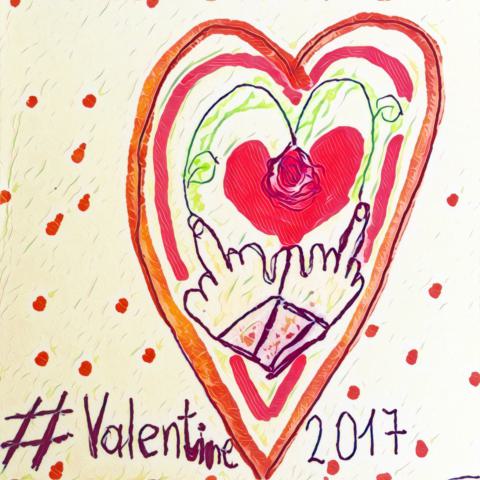 #Valentine 2017